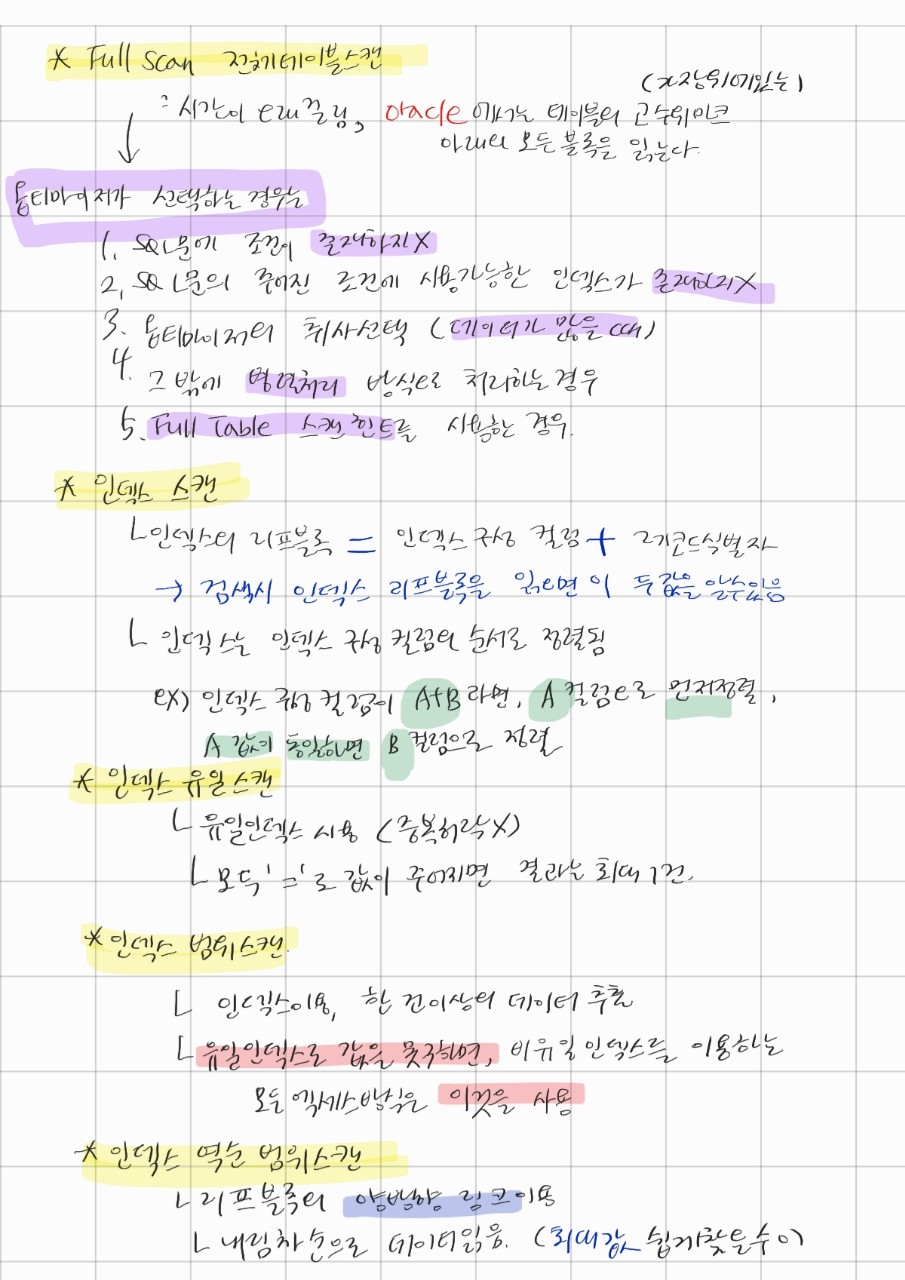 * Full Scan 전체테이블스캔
(가장위에있는)
: 시간이 오래걸림, oracle에서는 테이블의 고수위마크
아래의 모든 블록을 읽는다.
옵티마이저가 선택하는 경우는
1. SQL문에 조건이 존재하지X
2. SQL문의 주어진 조건에 사용가능한 인덱스가 존재하지X
3. 옵티마이저의 취사선택 (데이터가 많을 때)
4. 그 밖에 병렬처리 방식으로 처리하는 경우
5. Full Table 스캔 힌트를 사용한 경우.
* 인덱스 스캔
ㄴ인덱스의 리프블록 = 인덱스 구성 컬럼 + 레코드식별자
→ 검색시 인덱스 리프블록을 읽으면 이 두값을 알수있음
ㄴ 인덱스는 인덱스 구성 컬럼의 순서로 정렬됨
ex) 인덱스 구성 컬럼이 A+B라면, A컬럼으로 먼저정렬,
A값이 동일하면 B컬럼으로 정렬
* 인덱스 유일스캔
ㄴ 유일인덱스 사용 (중복허락X)
ㄴ 모두 '='로 값이 주어지면 결과는 최대 1건.
* 인덱스 범위스캔.
ㄴ 인덱스이용, 한 건이상의 데이터 추출
ㄴ 유일인덱스로 값을 못구하면, 비유일 인덱스를 이용하는
모든 엑세스방식은 이것을 사용
* 인덱스 역순 범위스캔
ㄴ 리프블록의 양방향 링크이용
ㄴ 내림차순으로 데이터읽음. (최대값 쉽게찾을수 O)